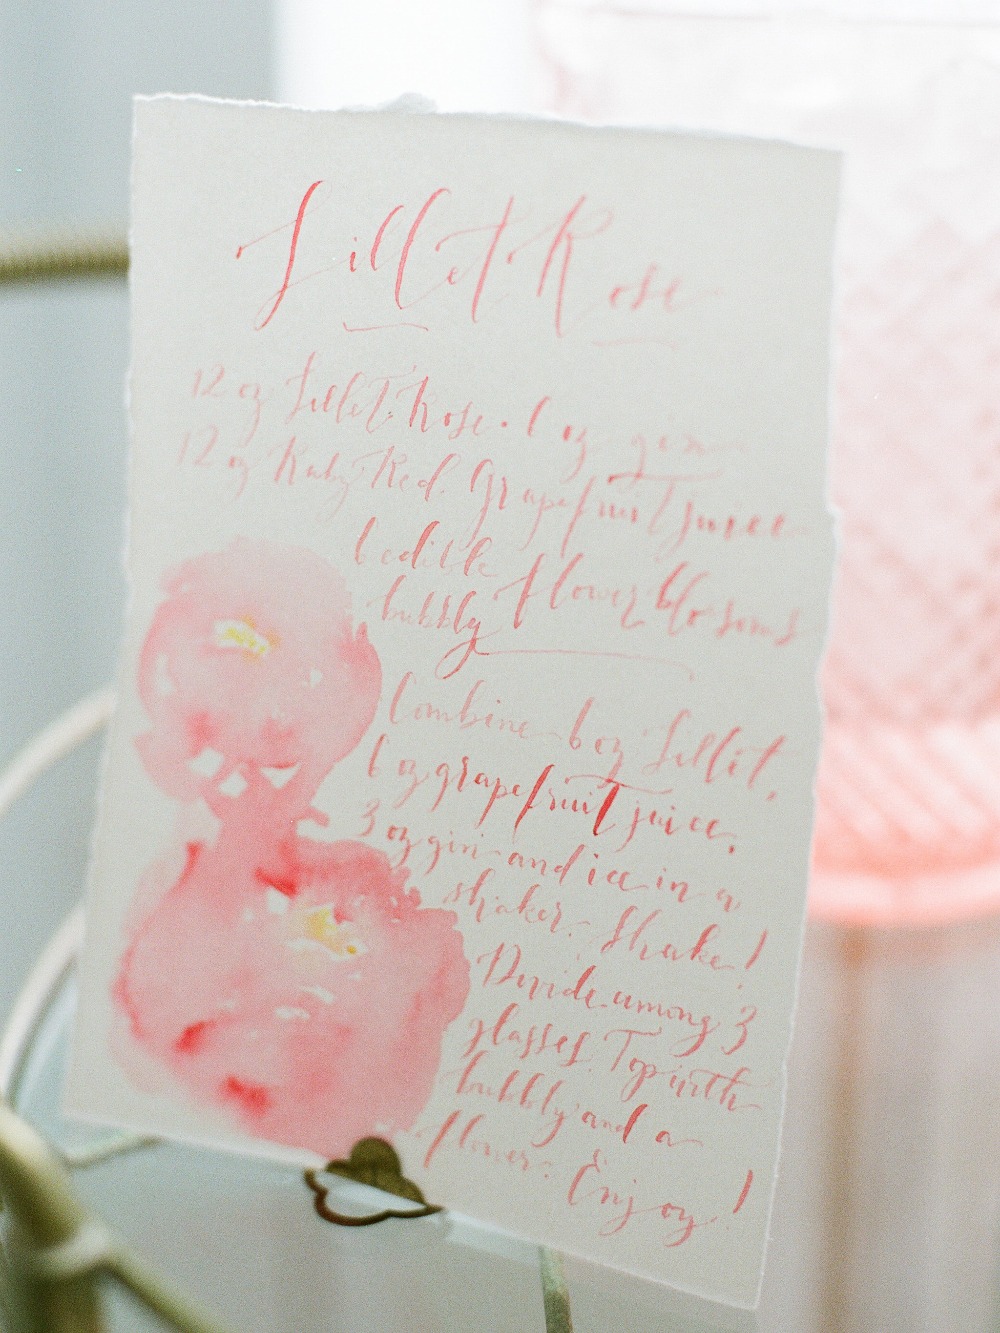 Lillet Rose
12 oz Lillet Rose • 6 oz gin
12 oz Ruby Red Grapefruit juice
6 edible flower blossoms
bubbly
Combine 6 oz Lillet,
6 oz grapefruit juice,
3 oz gin and ice in a
shaker. Shake!
Divide among 3
glasses. Top with
bubbly and a
flower. Enjoy!